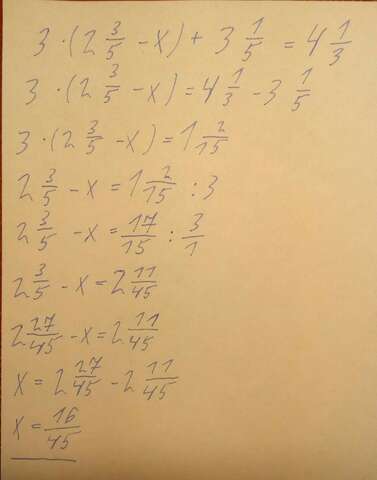 3 · (2 3/5 - x) + 3 1/5 = 4 1/3
3 · (2 3/5 - x) = 4 1/3 - 3 1/5
3 · (2 3/5 - x) = 1 2/15
2 3/5 - x = 1 2/15 : 3
2 3/5 - x = 17/15 : 3/1
2 3/5 - x = 2 11/45
2 27/45 - x = 2 11/45
x = 2 27/45 - 2 11/45
x = 16/45